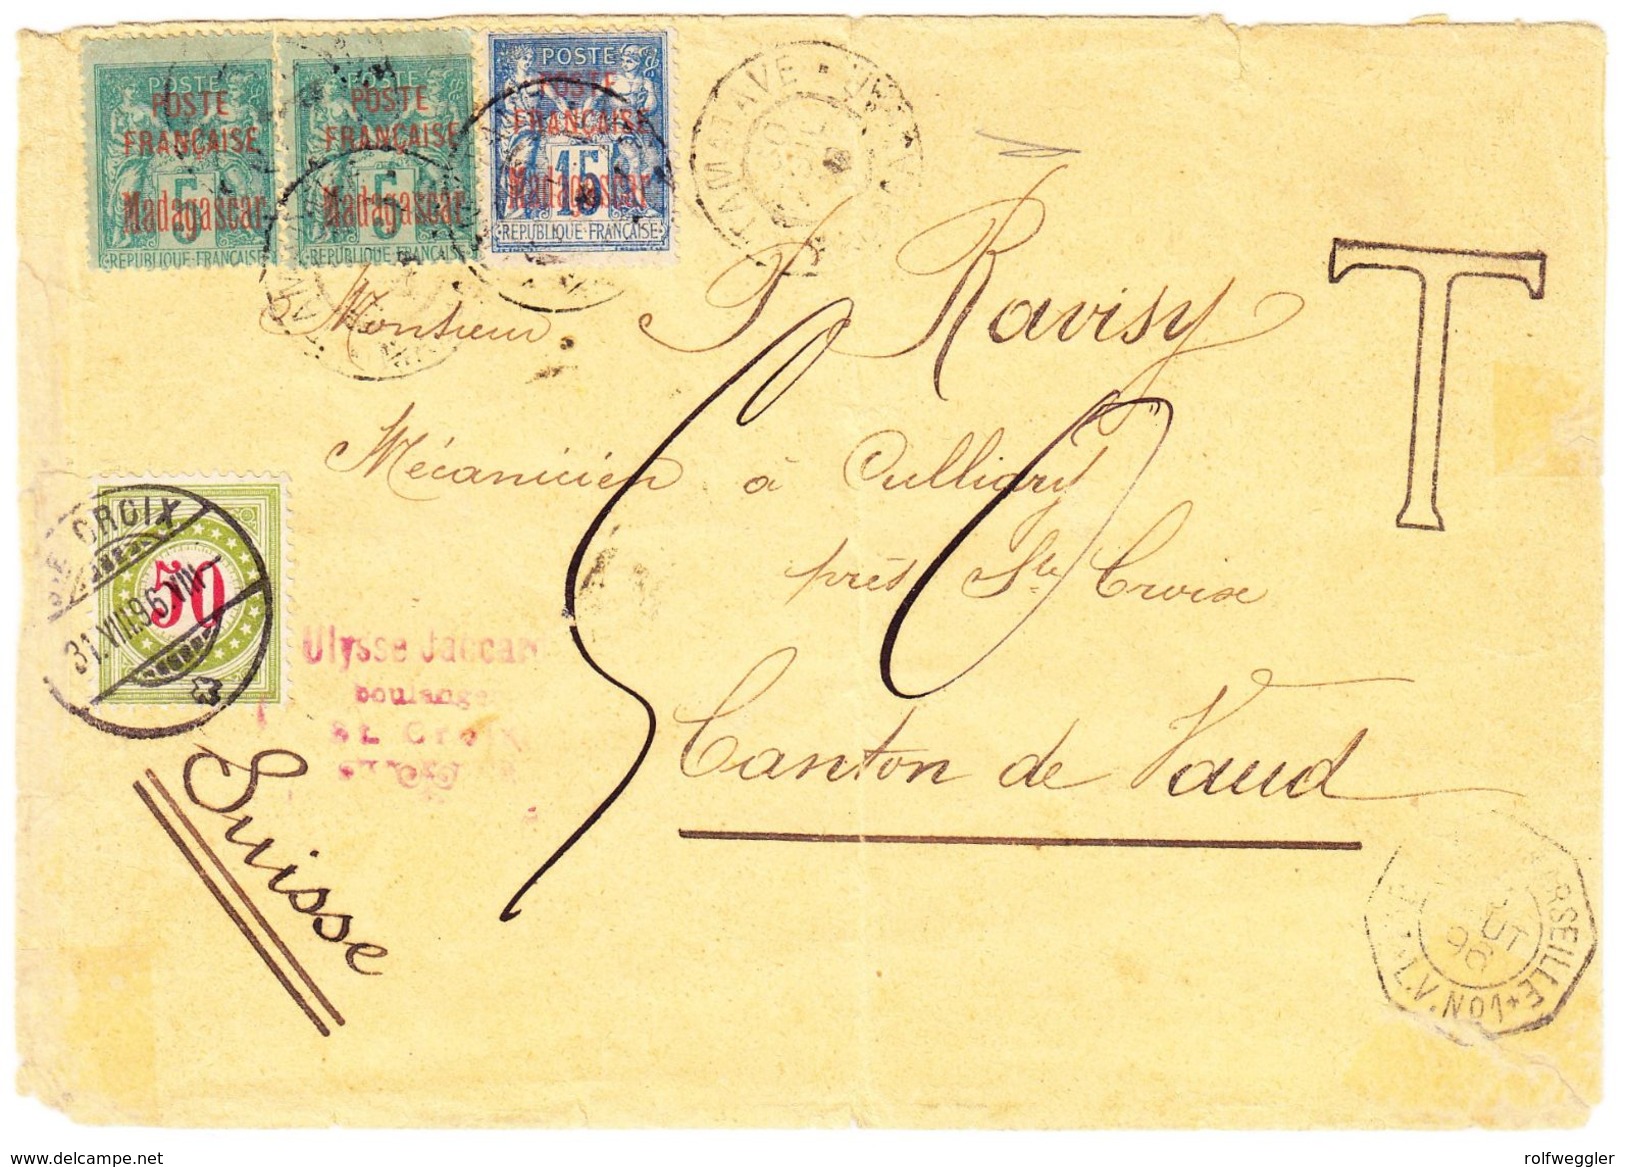 POSTE
POSTE
FRANÇAISE
5
Madagascar
REPUBLIQUE FRANÇAISE
POSTE
POSTE
FRANÇAISE
5
Madagascar
REPUBLIQUE FRANÇAISE
POSTE
POSTE
FRANÇAISE
15
Madagascar
REPUBLIQUE FRANÇAISE
TAMATAVE
T
Monsieur Ravisy
Mécanicien à Culliary
près Ste Croix
Canton de Vaud
Suisse
50
STE CROIX
31.VIII.96.VIII
50
Ulysse Jaccar
boulanger
St. Croix
MARSEILLE
L.V. No1
OUT
96
www.delcampe.net
rolfweggler